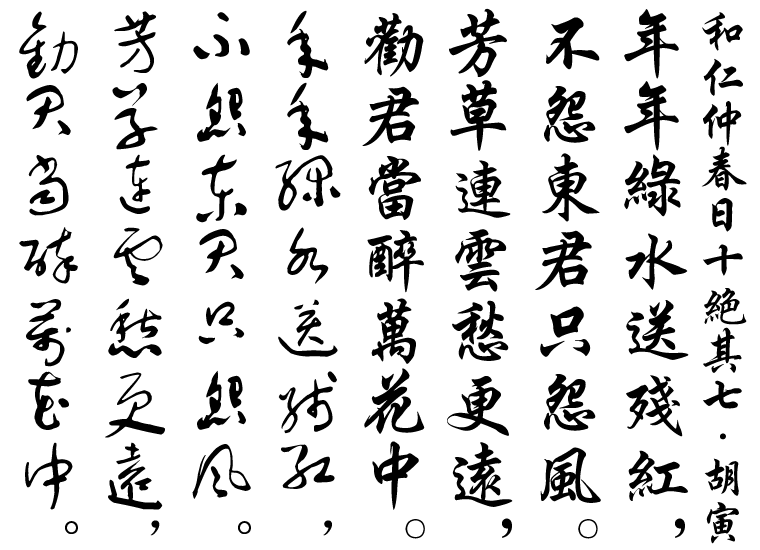 和仁仲春日十絕其七·胡寅
年年綠水送殘紅，
不怨東君只怨風。
芳草連雲愁更遠，
勸君當醉萬花中。
年年綠水送殘紅，
不怨東君只怨風。
芳草連雲愁更遠，
勸君當醉萬花中。